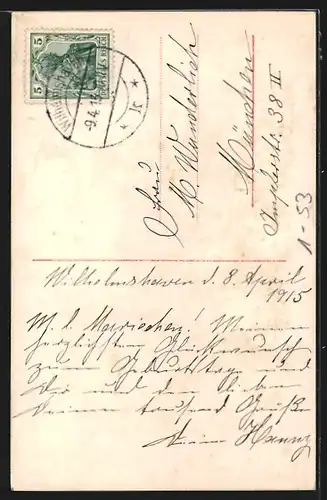 5 5
DEUTSCHES REICH
WILHELMSHAVEN
-9.4.15
* 1r *
Frau
M. Wunderlich
München
Implerstr. 38 II
1-53
Wilhelmshaven d. 8. April
1915
M. l. Mariechen! Meinen
herzlichsten Glückwunsch
zum Geburtstage und
Dir und den lieben
Deinen tausend Grüße
Dein Hanny